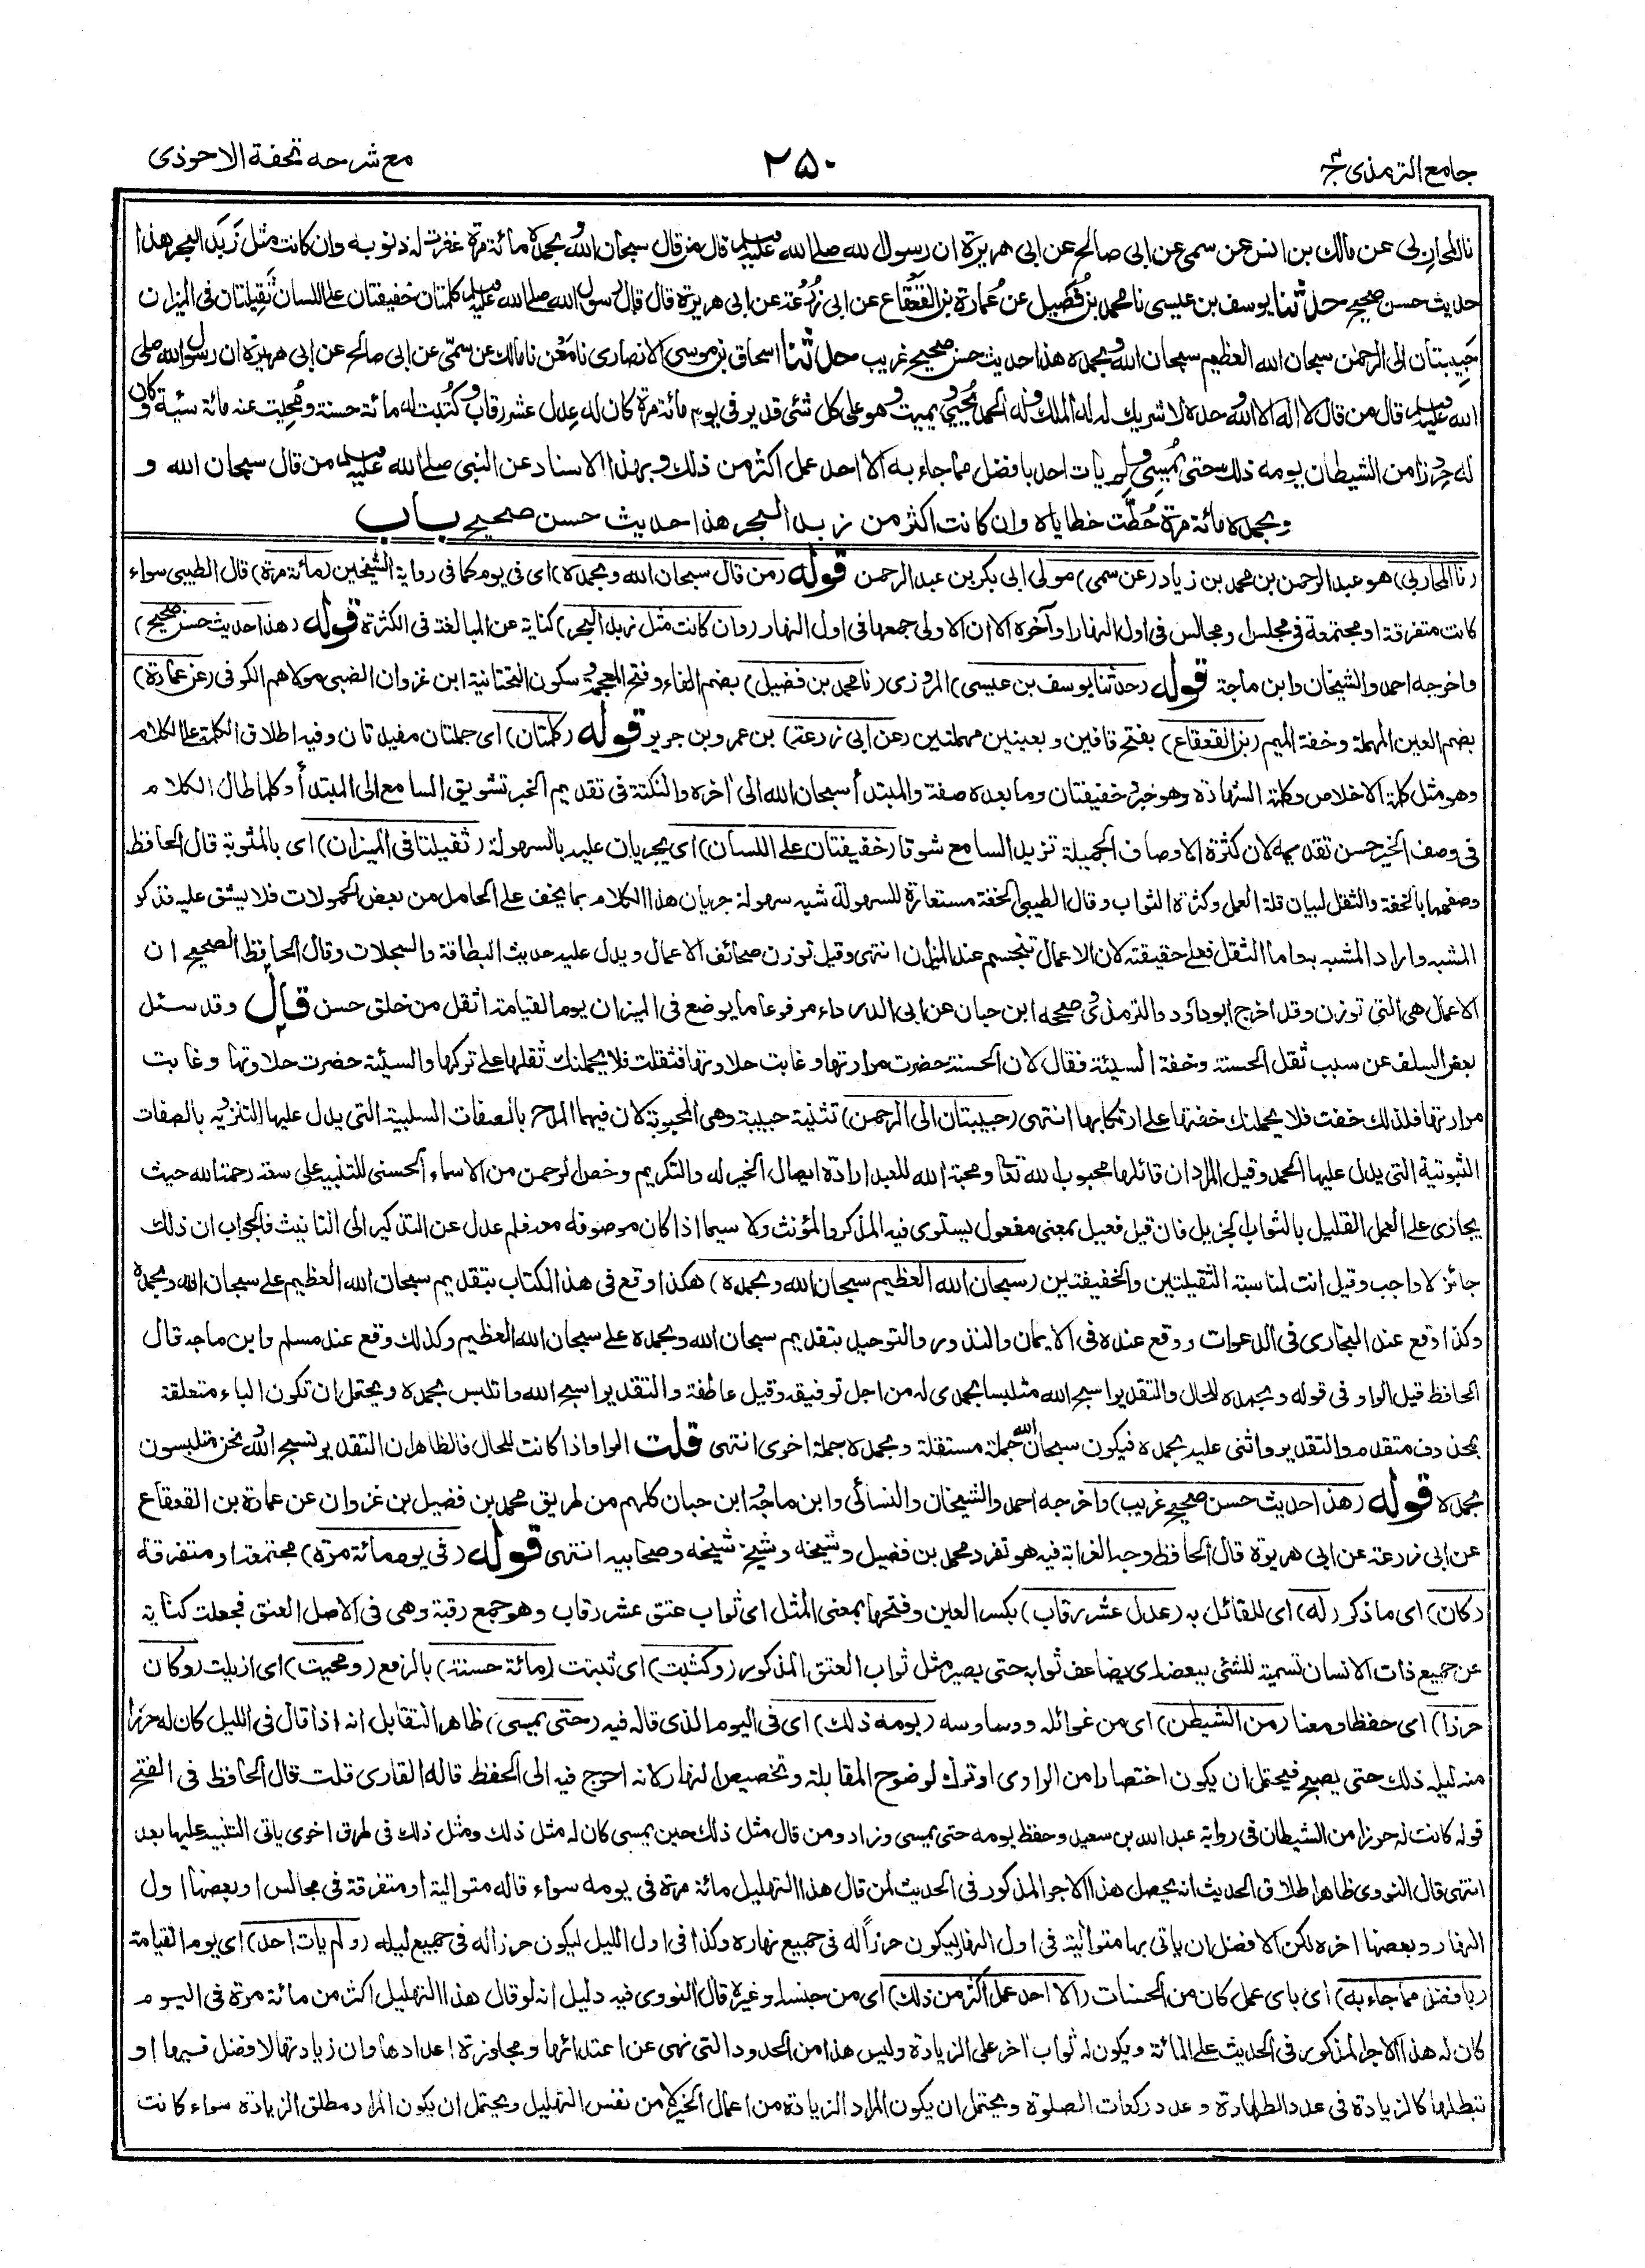 جامع الترمذی ج٤
٢٥٠
مع شرحه تحفة الاحوذی
نا المحاربی عن مالك بن انس عن سمی عن ابی صالح عن ابی هریرة ان رسول الله صلی الله علیه وسلم قال من قال سبحان الله وبحمده مائة مرة غفرت له ذنوبه وان كانت مثل زَبَد البحر هذا
حدیث حسن صحیح حدثنا یوسف بن عیسی نا محمد بن فُضَیل عن عُمارة بن القَعْقَاع عن ابی زُرْعَة عن ابی هریرة قال قال رسول الله صلی الله علیه وسلم كلمتان خفیفتان علی اللسان ثَقِیلتان فی المیزان
حَبِیبتان الی الرحمٰن سبحان الله العظیم سبحان الله وبحمده هذا حدیث حسن صحیح غریب حدثنا اسحاق بن موسی الانصاری نا مَعْن نا مالك عن سمّی عن ابی صالح عن ابی هریرة ان رسول الله صلی
الله علیه وسلم قال من قال لا اله الا الله وحده لا شریك له له الملك وله الحمد یُحیِی ویمیت وهو علی كل شئی قدیر فی یوم مائة مرة كان له عِدل عشر رقاب وكُتبت له مائة حسنة ومُحِیَت عنه مائة سیئة وكان
له حِرْزا من الشیطان یومه ذلك حتی یُمسِیَ ولم یات احد بافضل مما جاء به الا احد عمل اكثر من ذلك وبهذا الاسناد عن النبی صلی الله علیه وسلم من قال سبحان الله و
وبحمده مائة مرة حُطَّت خطایاه وان كانت اكثر من زبد البحر هذا حدیث حسن صحیح باب
(نا المحاربی) هو عبد الرحمن بن محمد بن زیاد (عن سمی) مولی ابی بكر بن عبد الرحمن قوله (من قال سبحان الله وبحمده) ای فی یوم كما فی روایة الشیخین (مائة مرة) قال الطیبی سواء
كانت متفرقة او مجتمعة فی مجلس او مجالس فی اول النهار او آخره الا ان الاولی جمعها فی اول النهار (وان كانت مثل زبد البحر) كنایة عن المبالغة فی الكثرة قوله (هذا حدیث حسن صحیح)
واخرجه احمد والشیخان وابن ماجة قوله (حدثنا یوسف بن عیسی) المروزی (نا محمد بن فضیل) بضم الفاء وفتح المعجمة وسكون التحتانیة ابن غزوان الضبی مولاهم الكوفی (عن عمارة)
بضم العین المهملة وخفة المیم (بن القعقاع) بفتح قافین وبعینین مهملتین (عن ابی زرعة) بن عمرو بن جریر قوله (كلمتان) ای جملتان مفیدتان وفیه اطلاق الكلمة علی الكلام
وهو مثل كلمة الاخلاص وكلمة الشهادة وهو خبر وخفیفتان وما بعده صفة والمبتدأ سبحان الله الی اٰخره والنكتة فی تقدیم الخبر تشویق السامع الی المبتدأ وكلما طال الكلام
فی وصف الخبر حسن تقدیمه لان كثرة الاوصاف الجمیلة تزید السامع شوقا (خفیفتان علی اللسان) ای یجریان علیه بالسهولة (ثقیلتا فی المیزان) ای بالمثوبة قال الحافظ
وصفهما بالخفة والثقل لبیان قلة العمل وكثرة الثواب وقال الطیبی الخفة مستعارة للسهولة شبه سهولة جریان هذا الكلام بما یخف علی الحامل من بعض الحمولات فلا یشق علیه فذكر
المشبه واراد المشبه به واما الثقل فعلی حقیقته لان الاعمال تتجسم عند المیزان انتهی وقیل توزن صحائف الاعمال ویدل علیه حدیث البطاقة والسجلات وقال الحافظ الصحیح ان
الاعمال هی التی توزن وقد اخرج ابو داؤد والترمذی وصححه ابن حبان عن ابی الدرداء مرفوعا ما یوضع فی المیزان یوم القیامة اثقل من خلق حسن قال وقد سئل
بعض السلف عن سبب ثقل الحسنة وخفة السیئة فقال لان الحسنة حضرت مرارتها وغابت حلاوتها فثقلت فلا یحملنك ثقلها علی تركها والسیئة حضرت حلاوتها وغابت
مرارتها فلذلك خفت فلا یحملنك خفتها علی ارتكابها انتهی (حبیبتان الی الرحمن) تثنیة حبیبة وهی المحبوبة لان فیهما المدح بالصفات السلبیة التی یدل علیها التنزیه بالصفات
الثبوتیة التی یدل علیها الحمد وقیل المراد ان قائلها محبوب الله تعا ومحبة الله للعبد ارادة ایصال الخیر له والتكریم وخص الرحمن من الاسماء الحسنی للتنبیه علی سعة رحمة الله حیث
یجازی علی العمل القلیل بالثواب الجزیل فان قیل فعیل بمعنی مفعول یستوی فیه المذكر والمؤنث ولا سیما اذا كان موصوفه معه فلم عدل عن التذكیر الی التانیث فالجواب ان ذلك
جائز لا واجب وقیل انث لمناسبة الثقیلتین والخفیفتین (سبحان الله العظیم سبحان الله وبحمده) هكذا وقع فی هذا الكتاب بتقدیم سبحان الله العظیم علی سبحان الله وبحمده
وكذا وقع عند البخاری فی الدعوات ووقع عنده فی الایمان والنذور والتوحید بتقدیم سبحان الله وبحمده علی سبحان الله العظیم وكذلك وقع عند مسلم وابن ماجه قال
الحافظ قیل الواو فی قوله وبحمده للحال والتقدیر اسبح الله متلبسا بحمدی له من اجل توفیقه وقیل عاطفة والتقدیر اسبح الله واتلبس بحمده ویحتمل ان تكون الباء متعلقة
بمحذوف متقدم والتقدیر واثنی علیه بحمده فیكون سبحان الله جملة مستقلة وبحمده جملة اخری انتهی قلت الواو اذا كانت للحال فالظاهر ان التقدیر نسبح الله ونحن متلبسون
بحمده قوله (هذا حدیث حسن صحیح غریب) واخرجه احمد والشیخان والنسائی وابن ماجة وابن حبان كلهم من طریق محمد بن فضیل بن غزوان عن عمارة بن القعقاع
عن ابی زرعة عن ابی هریرة قال الحافظ وجه الغرابة فیه هو تفرد محمد بن فضیل وشیخه وشیخ شیخه وصحابیه انتهی قوله (فی یوم مائة مرة) مجتمعة او متفرقة
(كان) ای ما ذكر (له) ای للقائل به (عدل عشر رقاب) بكسر العین وفتحها بمعنی المثل ای ثواب عتق عشر رقاب وهو جمع رقبة وهی فی الاصل العنق فجعلت كنایة
عن جمیع ذات الانسان تسمیة للشئی ببعضه ای یضاعف ثوابه حتی یصیر مثل ثواب العتق المذكور (وكتبت) ای ثبتت (مائة حسنة) بالرفع (ومحیت) ای ازیلت (وكان
حرزا) ای حفظا ومعنا (من الشیطن) ای من غوائله ووساوسه (یومه ذلك) ای فی الیوم الذی قاله فیه (حتی یمسی) ظاهر التقابل انه اذا قال فی اللیل كان له حرزا
منه لیله ذلك حتی یصبح فیحتمل ان یكون اختصارا من الراوی او ترك لوضوح المقابلة وتخصیص النهار لانه احوج فیه الی الحفظ قاله القاری قلت قال الحافظ فی الفتح
قوله كانت له حرزا من الشیطان فی روایة عبد الله بن سعید وحفظ یومه حتی یمسی وزاد ومن قال مثل ذلك حین یمسی كان له مثل ذلك ومثل ذلك فی طرق اخری یاتی التنبیه علیها بعد
انتهی قال النووی ظاهر اطلاق الحدیث انه یحصل هذا الاجر المذكور فی الحدیث لمن قال هذا التهلیل مائة مرة فی یومه سواء قاله متوالیة او متفرقة فی مجالس او بعضها اول
النهار وبعضها اخره لكن الافضل ان یاتی بها متوالیة فی اول النهار لیكون حرزاً له فی جمیع نهاره وكذا فی اول اللیل لیكون حرزا له فی جمیع لیله (ولم یات احد) ای یوم القیامة
(بافضل مما جاء به) ای بای عمل كان من الحسنات (الا احد عمل اكثر من ذلك) ای من جنسه او غیره قال النووی فیه دلیل انه لو قال هذا التهلیل اكثر من مائة مرة فی الیوم
كان له هذا الاجر المذكور فی الحدیث علی المائة ویكون له ثواب اٰخر علی الزیادة ولیس هذا من الحدود التی نهی عن اعتدائها ومجاوزة اعدادها وان زیادتها لا فضل فیها او
تبطلها كالزیادة فی عدد الطهارة وعدد ركعات الصلوة ویحتمل ان یكون المراد الزیادة من اعمال الخیر لا من نفس التهلیل ویحتمل ان یكون المراد مطلق الزیادة سواء كانت